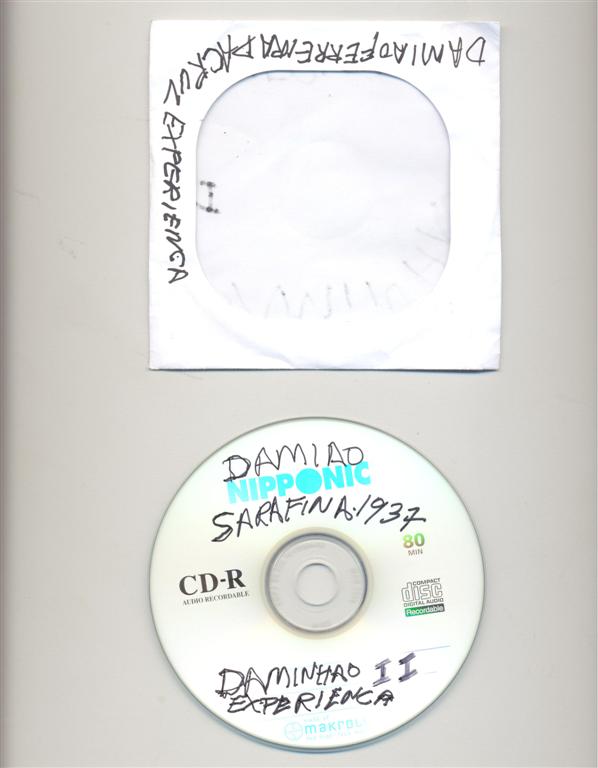 DAMIAO FERREIRA DA
CRUZ EXPERIENCA
II
DAMIAO
NIPPONIC
SARAFINA.1937
80
MIN
CD-R
AUDIO RECORDABLE
COMPACT
disc
DIGITAL AUDIO
Recordable
DAMINHAO II
EXPERIENCA